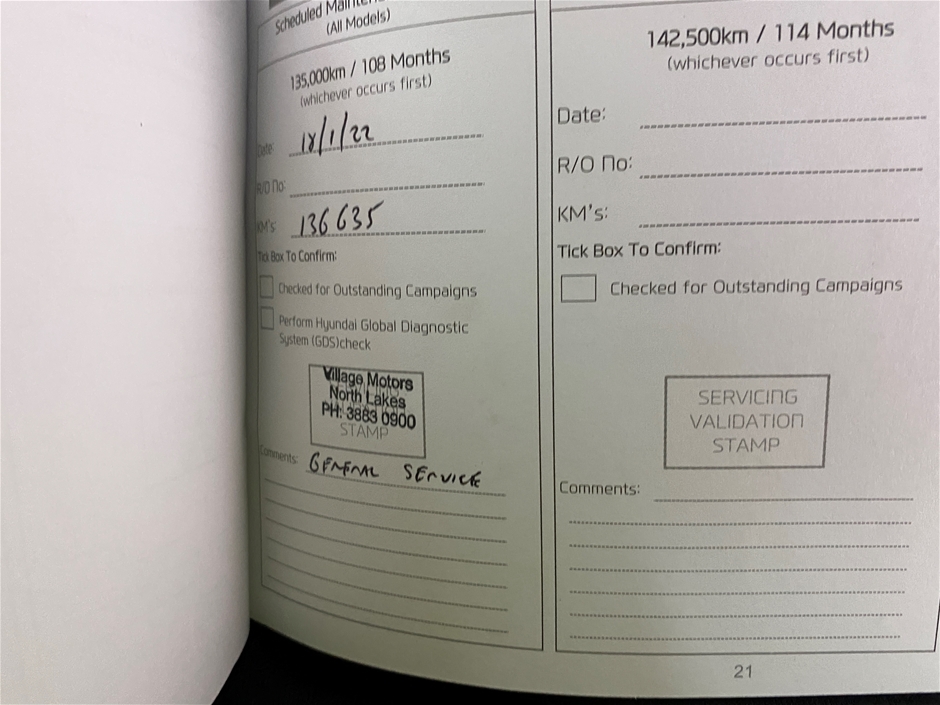 Scheduled
(All Models)
135,000km / 108 Months
(whichever occurs first)
Date:
18/1/22
R/O No:
KM's:
136635
Tick Box To Confirm:
Checked for Outstanding Campaigns
Perform Hyundai Global Diagnostic
System (GDS)check
Village Motors
North Lakes
PH: 3883 0900
STAMP
Comments: GENERAL SERVICE
142,500km / 114 Months
(whichever occurs first)
Date:
R/O No:
KM's:
Tick Box To Confirm:
Checked for Outstanding Campaigns
SERVICING
VALIDATION
STAMP
Comments:
21